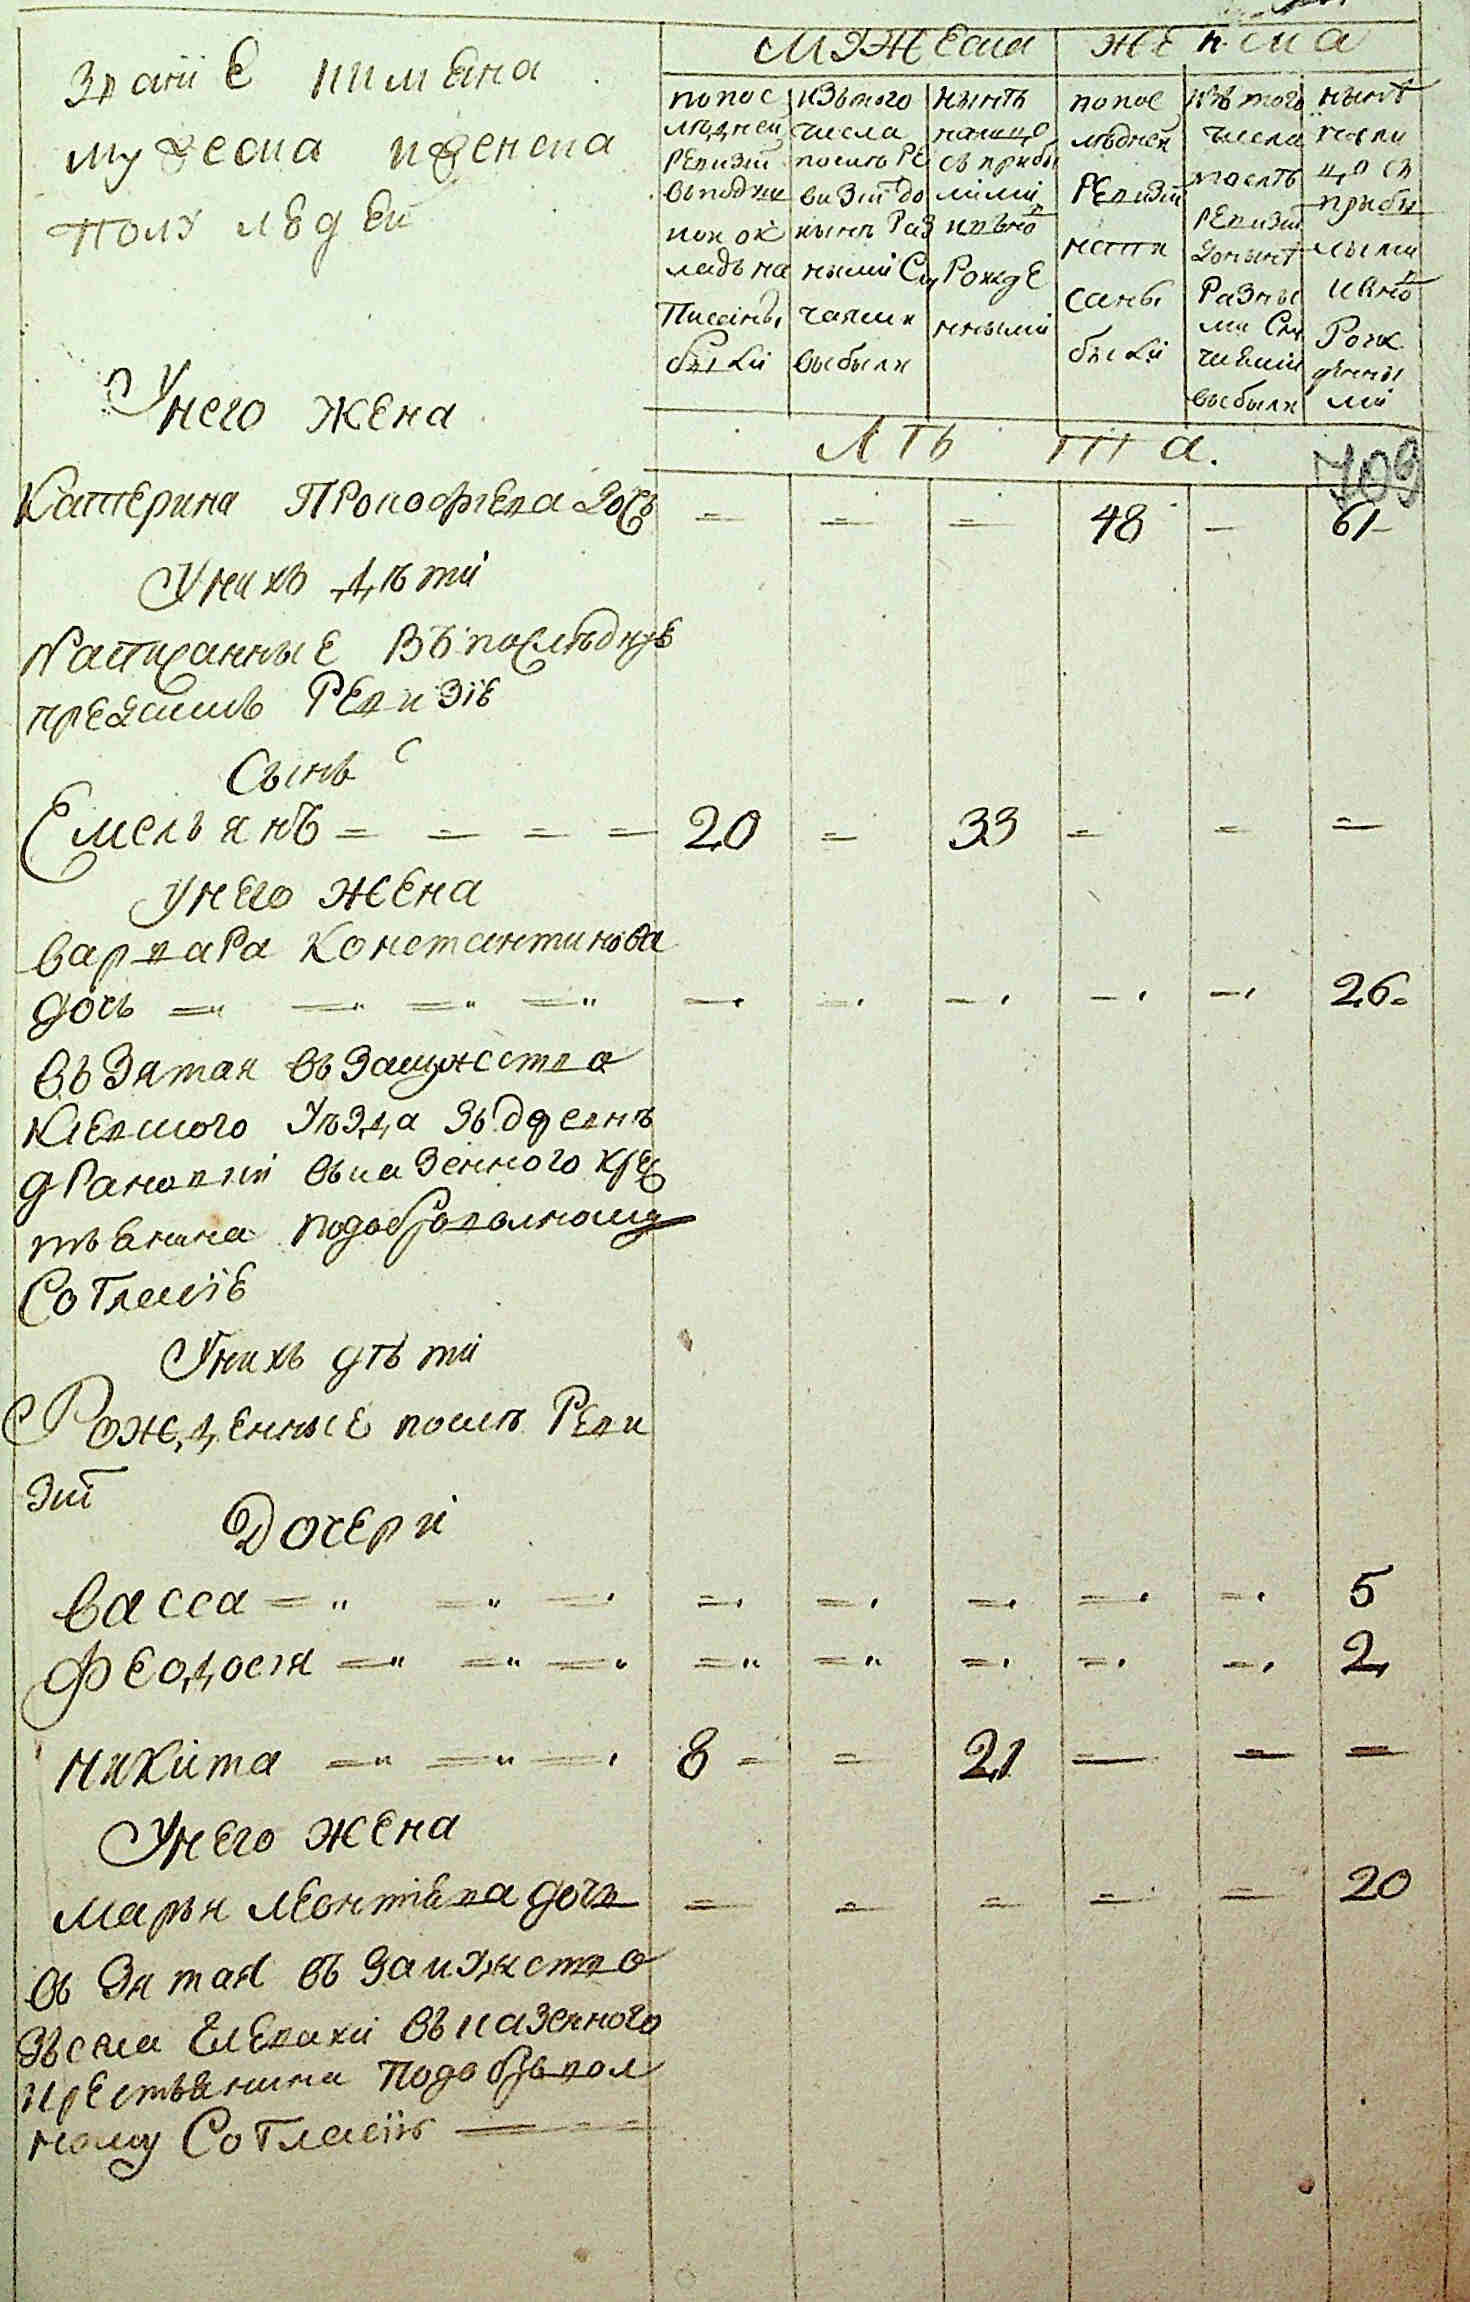 Званиіе имяна
мужеска иженска
полу людей
мужеска
женска
попос
лѣдней
Ревизіи
вподуш
ной ок
ладъ на
Писаны
были
изътого
числа
послѣ Ре
визіи до
нынѣ Раз
ными Слу
чаями
выбыли
нынѣ
налицо
съ прибы
лыми
ивно
Рожде
нными
попос
лѣдней
Ревизіи
напи
саны
были
изъ того
числа
послѣ
Ревизіи
донынѣ
Разны
ми Слу
чаями
выбыли
нынѣ
нали
цо съ
прибы
лыми
ивно
Рож
денны
ми
Лѣ та.
709
Унего жена
Катерина Прокофьева дочь = = = 48 – 61
Унихъ дѣти
Написанные въ последнуе
предшлю Ревизіе
Сынъ
Емельянъ = = = = 20 = 33 = = =
унего жена
варвара Константинова
дочь = = = = = = = = = 26
въ Зятая въ Замужество
Клевского Уѣзда Зъ деревнѣ
драновки въ казенного кре
стьянина подобровольному
Согласіе
Унихъ дѣти
Рожденные послѣ Реви
зіи
Дочери
васса = = = = = = = = 5
Феодосія = = = = = = = = 2
никита = = = 8 = = 21 = = =
Унего жена
марья леонтьева дочь = = = = = 20
въ Зятая въ Замужство
Зъ села Елевахи въ казенного
крестьянина Подоброволь
ному Согласію =